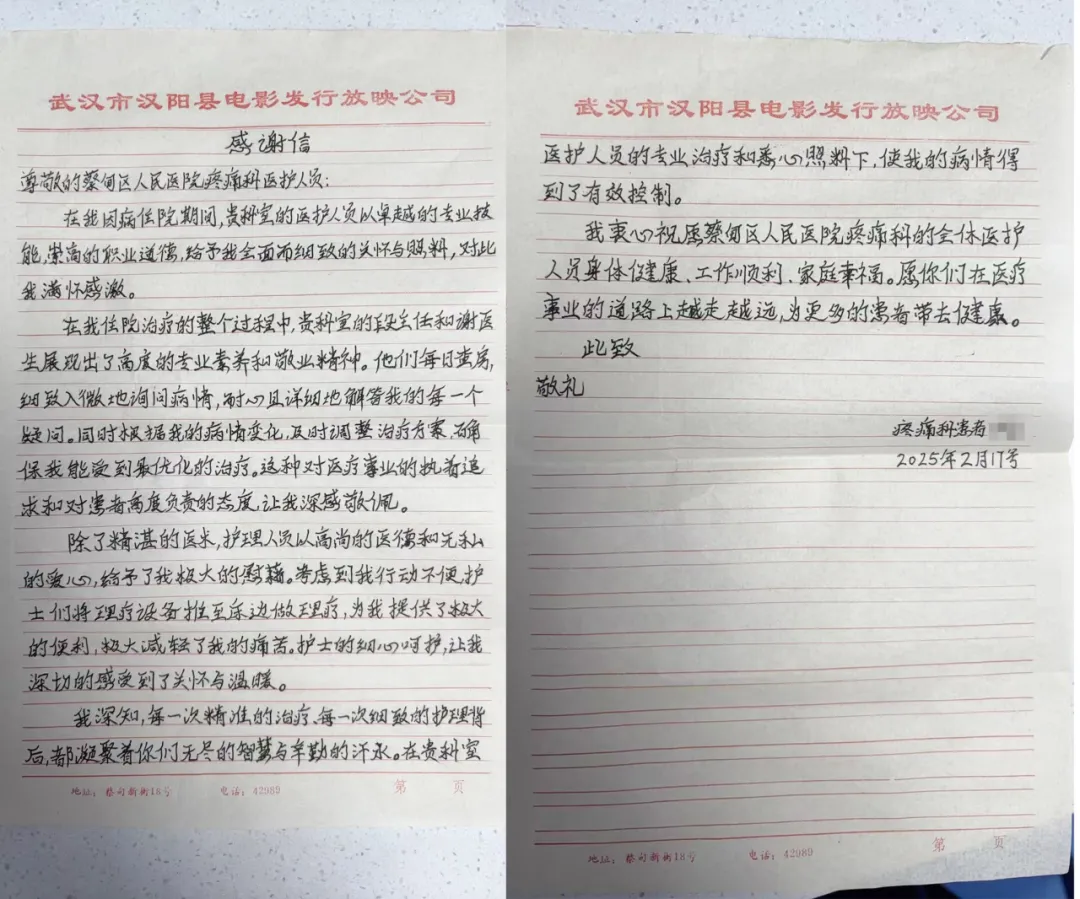 武汉市汉阳县电影发行放映公司
感谢信
尊敬的蔡甸区人民医院疼痛科医护人员:
在我因病住院期间,贵科室的医护人员以卓越的专业技
能,崇高的职业道德,给予我全面而细致的关怀与照料,对此
我满怀感激。
在我住院治疗的整个过程中,贵科室的段主任和谢医
生展现出了高度的专业素养和敬业精神。他们每日查房,
细致入微地询问病情,耐心且详细地解答我的每一个
疑问。同时根据我的病情变化,及时调整治疗方案,确
保我能受到最优化的治疗。这种对医疗事业的执着追
求和对患者高度负责的态度,让我深感敬佩。
除了精湛的医术,护理人员以高尚的医德和无私
的爱心,给予了我极大的慰藉。考虑到我行动不便,护
士们将理疗设备推至床边做理疗,为我提供了极大
的便利,极大减轻了我的痛苦。护士的细心呵护,让我
深切的感受到了关怀与温暖。
我深知,每一次精准的治疗、每一次细致的护理背
后,都凝聚着你们无尽的智慧与辛勤的汗水。在贵科室
地址:蔡甸新街18号 电话:42989 第 页
武汉市汉阳县电影发行放映公司
医护人员的专业治疗和悉心照料下,使我的病情得
到了有效控制。
我衷心祝愿蔡甸区人民医院疼痛科的全体医护
人员身体健康、工作顺利、家庭幸福。愿你们在医疗
事业的道路上越走越远,为更多的患者带去健康。
此致
敬礼
疼痛科患者
2025年2月17号
地址:蔡甸新街18号 电话:42989 第 页